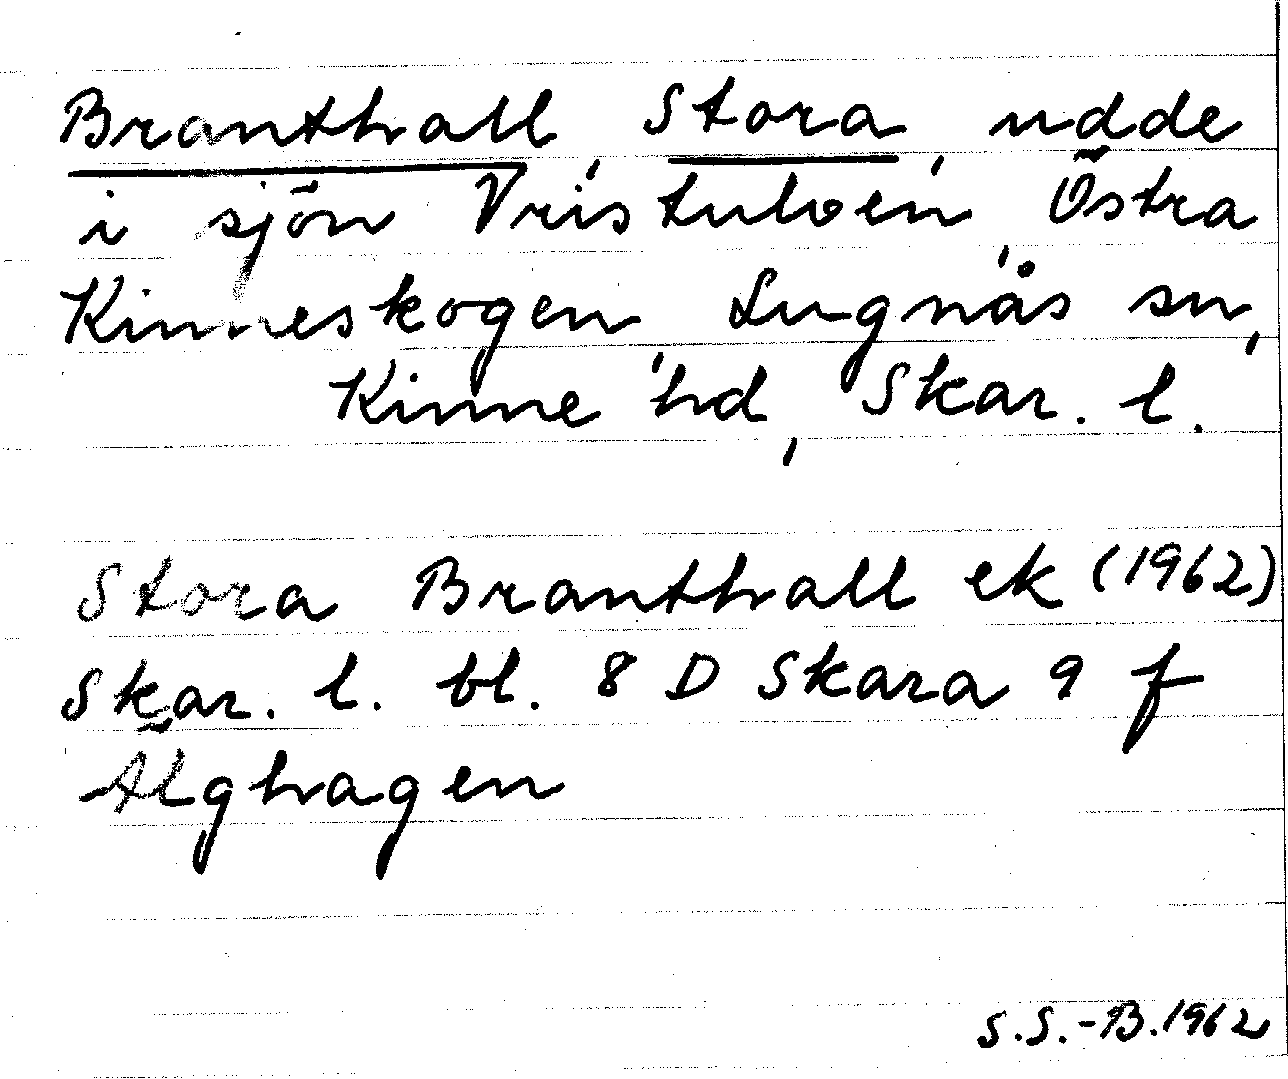 Branthall, Stora, udde
i sjön Vristulven, Östra
Kinneskogen, Lugnås sn,
Kinne hd, Skar. l.
Stora Branthall ek (1962)
Skar. l. bl. 8 D Skara 9 f
Älghagen
S.S.-B. 1962